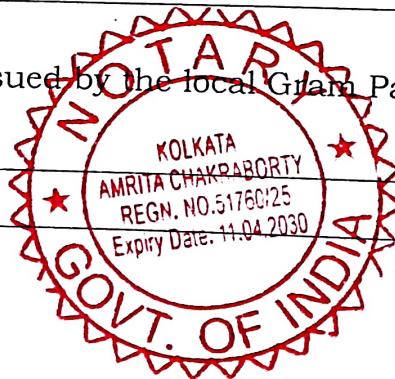 sued by the local Gram Pa
NOTARY
KOLKATA
AMRITA CHAKRABORTY
REGN. NO.51760/25
Expiry Date. 11.04.2030
GOVT. OF INDIA